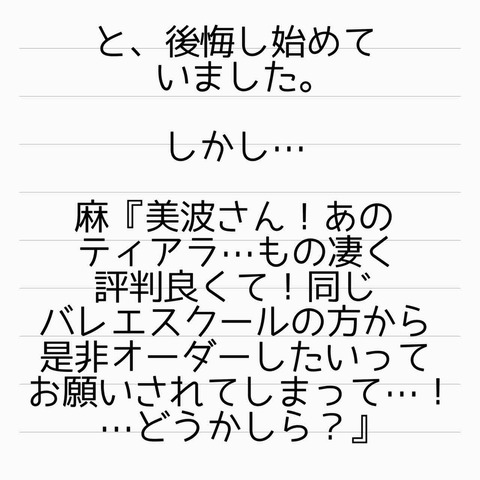 と、後悔し始めて
いました。
しかし…
麻『美波さん！あの
ティアラ…もの凄く
評判良くて！同じ
バレエスクールの方から
是非オーダーしたいって
お願いされてしまって…！
…どうかしら？』